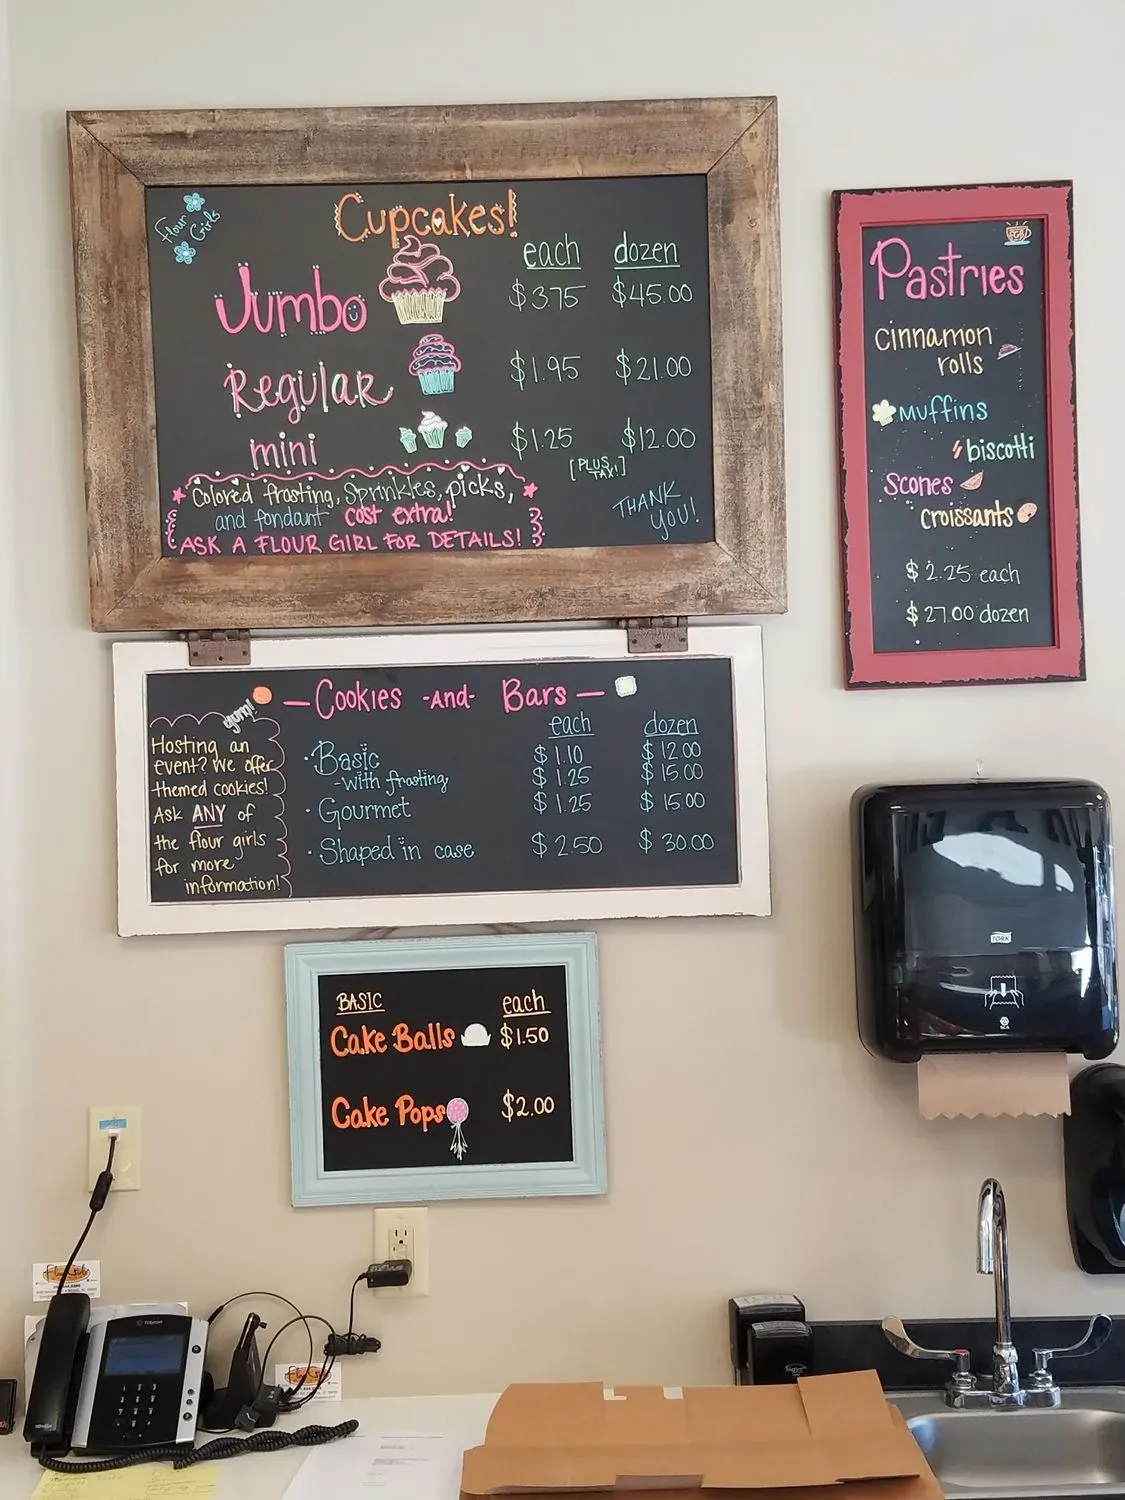 Flour Girls
Cupcakes!
each dozen
Jumbo $375 $45.00
Regular $1.95 $21.00
mini $1.25 $12.00
[PLUS TAX!]
Colored frosting, sprinkles, picks,
and fondant cost extra!
ASK A FLOUR GIRL FOR DETAILS!
THANK
YOU!
Pastries
cinnamon
rolls
muffins
biscotti
scones
croissants
$2.25 each
$27.00 dozen
-Cookies -AND- Bars-
yum!
Hosting an
event? We offer
themed cookies!
Ask ANY of
the flour girls
for more
information!
each dozen
·Basic $1.10 $12.00
-with frosting $1.25 $15.00
·Gourmet $1.25 $15.00
·Shaped in case $2.50 $30.00
BASIC each
Cake Balls $1.50
Cake Pops $2.00
TORK
SCA
Polycom